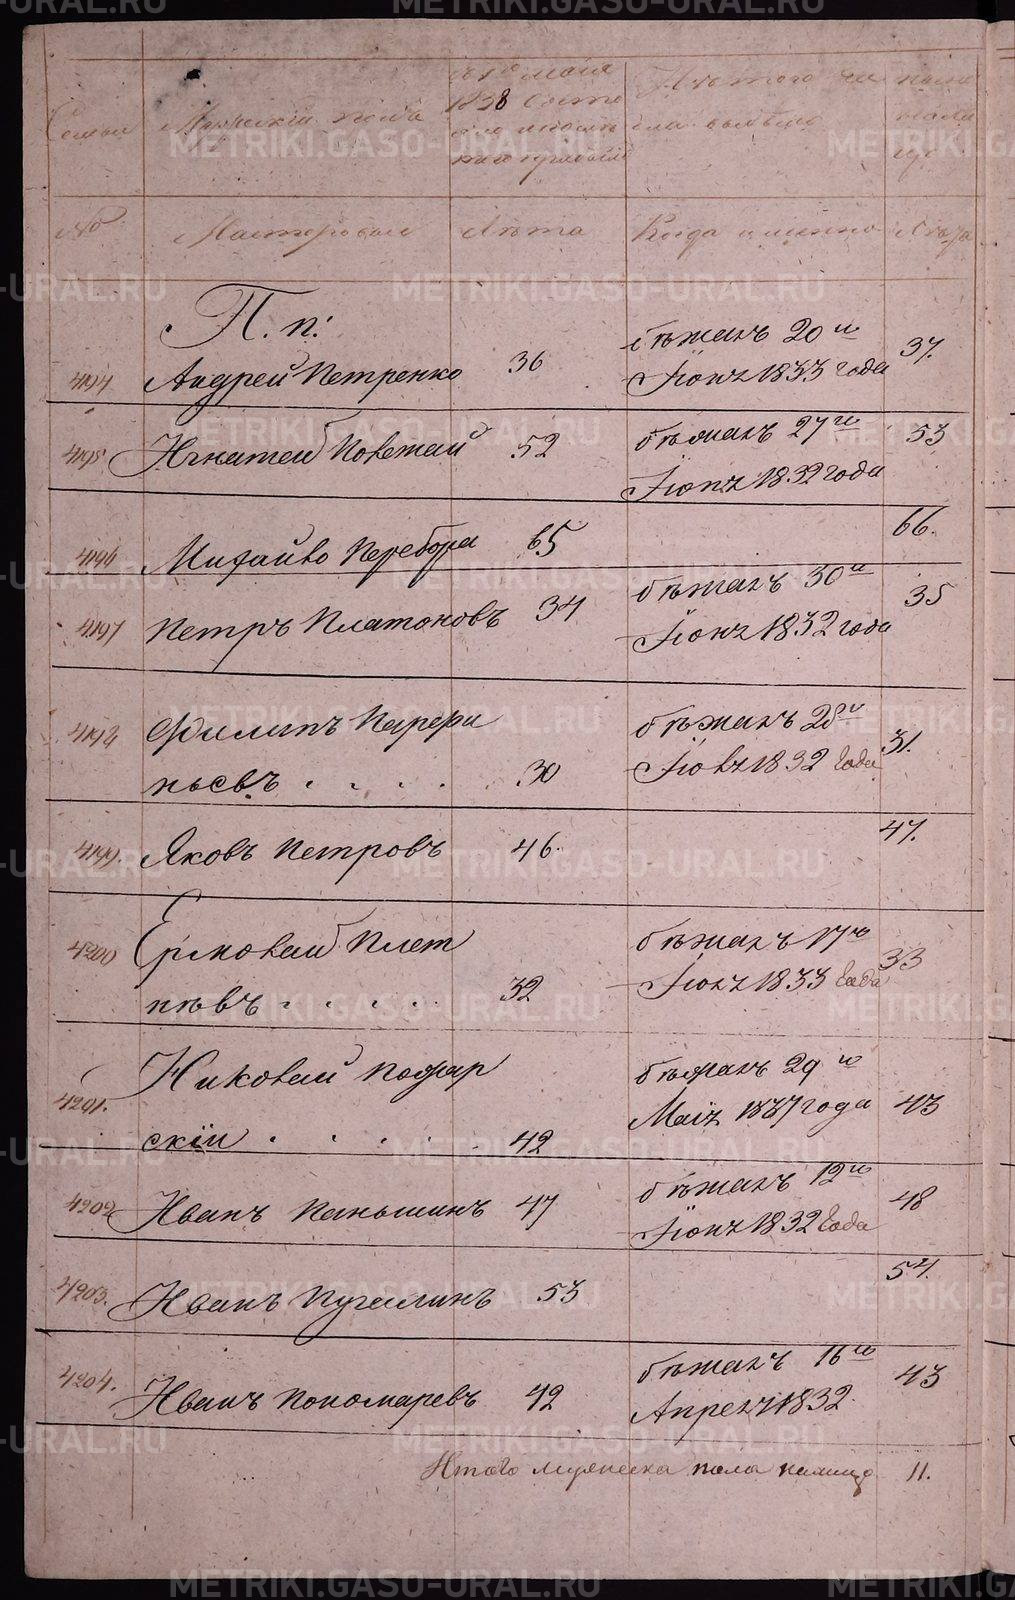 METRIKI.GASO-URAL.RU
Семьи
Мужескiй полъ
1838
Изъ того числа выбыло
№
Мастеровые
Лѣта
Когда именно
Лѣта
П. п:
4194 Андрей Петренко 36 бѣжалъ 20го Iюня 1833 года 37.
4195 ИгнатейПовежай 52 бѣжалъ 27го Iюня 1832 года 53
4196 МихайлоПеребора 65 66.
4197 Петръ Платоновъ 34 бѣжалъ 30го Iюня 1832 года 35
4198 Филипъ Перфи
льевъ . . . . 30 бѣжалъ 28го Iюля 1832 года 31.
4199. Яковъ Петровъ 46. 47.
4200 Ермолай Плет
нѣвъ . . . . . 32 бѣжалъ 17го Iюля 1833 года 33
4201. Николай Пожар
скiи . . . . . 42 бѣжалъ 29го Маiя 1837 года 43
4202 Иванъ Паньшинъ 47 бѣжалъ 12го Iюня 1832 года 48
4203. Иванъ Пугалинъ 53 54.
4204. Иванъ Пономаревъ 42 бѣжалъ 16го Апреля 1832 43
Итого мужеска пола налицо 11.